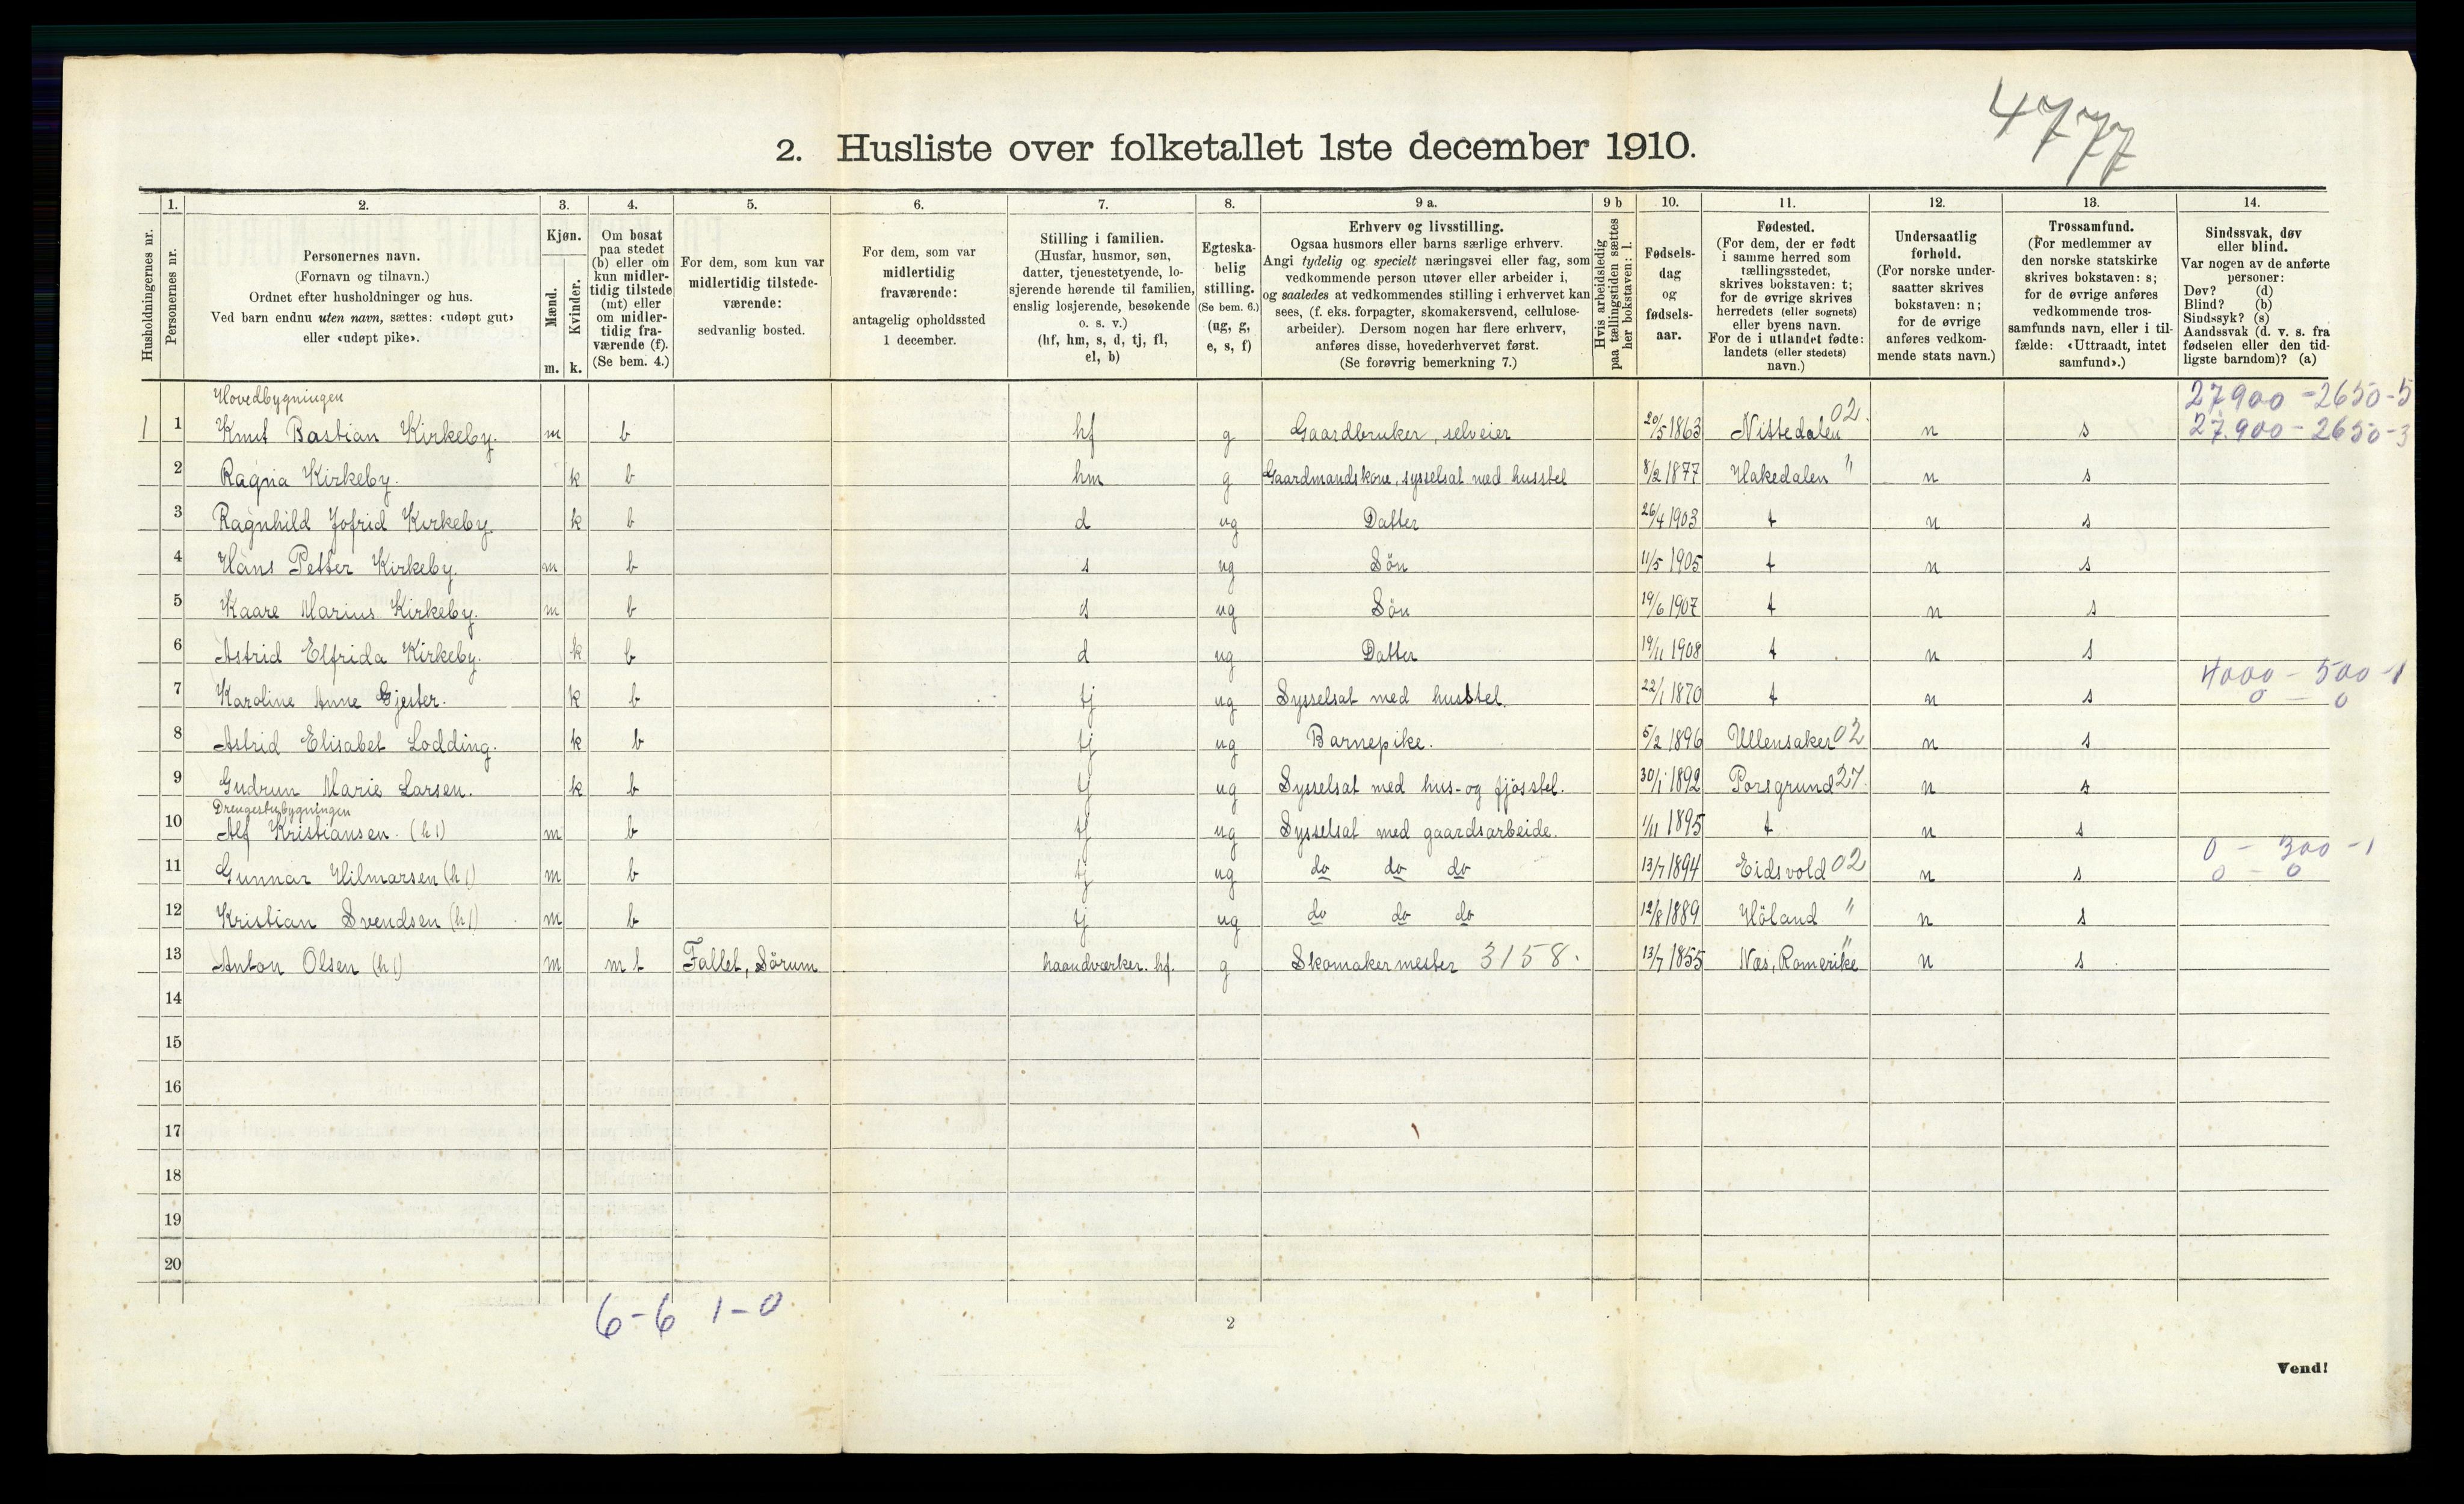 4777
2. Husliste over folketallet 1ste december 1910.
Husholdningernes nr.
1.
Personernes nr.
2.
Personernes navn.
(Fornavn og tilnavn.)
Ordnet efter husholdninger og hus.
Ved barn endnu uten navn, sættes: «udøpt gut»
eller «udøpt pike».
3.
Kjøn.
Mænd.
m.
Kvinder.
k.
4.
Om bosat
paa stedet
(b) eller om
kun midler-
tidig tilstede
(mt) eller
om midler-
tidig fra-
værende (f).
(Se bem. 4.)
5.
For dem, som kun var
midlertidig tilstede-
værende:
sedvanlig bosted.
6.
For dem, som var
midlertidig
fraværende:
antagelig opholdssted
1 december.
7.
Stilling i familien.
(Husfar, husmor, søn,
datter, tjenestetyende, lo-
sjerende hørende til familien,
enslig losjerende, besøkende
o. s. v.)
(hf, hm, s, d, tj, fl,
el, b)
8.
Egteska-
belig
stilling.
(Se bem. 6.)
(ug, g,
e, s, f)
9 a.
Erhverv og livsstilling.
Ogsaa husmors eller barns særlige erhverv.
Angi tydelig og specielt næringsvei eller fag, som
vedkommende person utøver eller arbeider i,
og saaledes at vedkommendes stilling i erhvervet kan
sees, (f. eks. forpagter, skomakersvend, cellulose-
arbeider). Dersom nogen har flere erhverv,
anføres disse, hovederhvervet først.
(Se forøvrig bemerkning 7.)
9 b
Hvis arbeidsledig
paa tællingstiden sættes
her bokstaven: l.
10.
Fødsels-
dag
og
fødsels-
aar.
11.
Fødested.
(For dem, der er født
i samme herred som
tællingsstedet,
skrives bokstaven: t;
for de øvrige skrives
herredets (eller sognets)
eller byens navn.
For de i utlandet fødte:
landets (eller stedets)
navn.)
12.
Undersaatlig
forhold.
(For norske under-
saatter skrives
bokstaven: n;
for de øvrige
anføres vedkom-
mende stats navn.)
13.
Trossamfund.
(For medlemmer av
den norske statskirke
skrives bokstaven: s;
for de øvrige anføres
vedkommende tros-
samfunds navn, eller i til-
fælde: «Uttraadt, intet
samfund».)
14.
Sindssvak, døv
eller blind.
Var nogen av de anførte
personer:
Døv? (d)
Blind? (b)
Sindssyk? (s)
Aandssvak (d. v. s. fra
fødselen eller den tid-
ligste barndom)? (a)
Hovedbygningen
27900 - 2650 - 5
1 1 Knut Bastian Kirkeby. m b hf g Gaardbruker, selveier 20/5 1863 Nittedalen 02. n s 27.900 - 2650 - 3
2 Ragna Kirkeby. k b hm g Gaardmandskone, sysselsat med husstel 8/2 1877 Hakedalen " n s
3 Ragnhild Jofrid Kirkeby k b d ug Datter 26/4 1903 t n s
4 Hans Petter Kirkeby. m b s ug Sön 11/5 1905 t n s
5 Kaare Marius Kirkeby. m b s ug Sön 19/6 1907 t n s
6 Astrid Elfrida Kirkeby. k b d ug Datter 19/11 1908 t n s
4000 - 500 - 1
7 Karoline Anne Gjester. k b tj ug Sysselsat med husstel. 22/1 1870 t n s 0 - 0
8 Astrid Elisabet Lodding. k b tj ug Barnepike. 5/2 1896 Ullensaker 02 n s
9 Gudrun Marie Larsen. k b tj ug Sysselsat med hus- og fjösstel. 30/1 1892 Porsgrund 27. n s
Drengestubygningen
10 Alf Kristiansen. (h1) m b tj ug Sysselsat med gaardsarbeide. 1/11 1895 t n s
0 - 300 - 1
11 Gunnar Hilmarsen (h1) m b tj ug do do do 13/7 1894 Eidsvold 02 n s 0 - 0
12 Kristian Svendsen (h1) m b tj ug do do do 12/8 1889 Höland " n s
13 Anton Olsen (h1) m mt Fallet, Sörum haandværker. hf. g Skomakermester 3158. 13/7 1855 Næs, Romerike " n s
14
15
16
17
18
19
20
6-6 1-0
2
Vend!